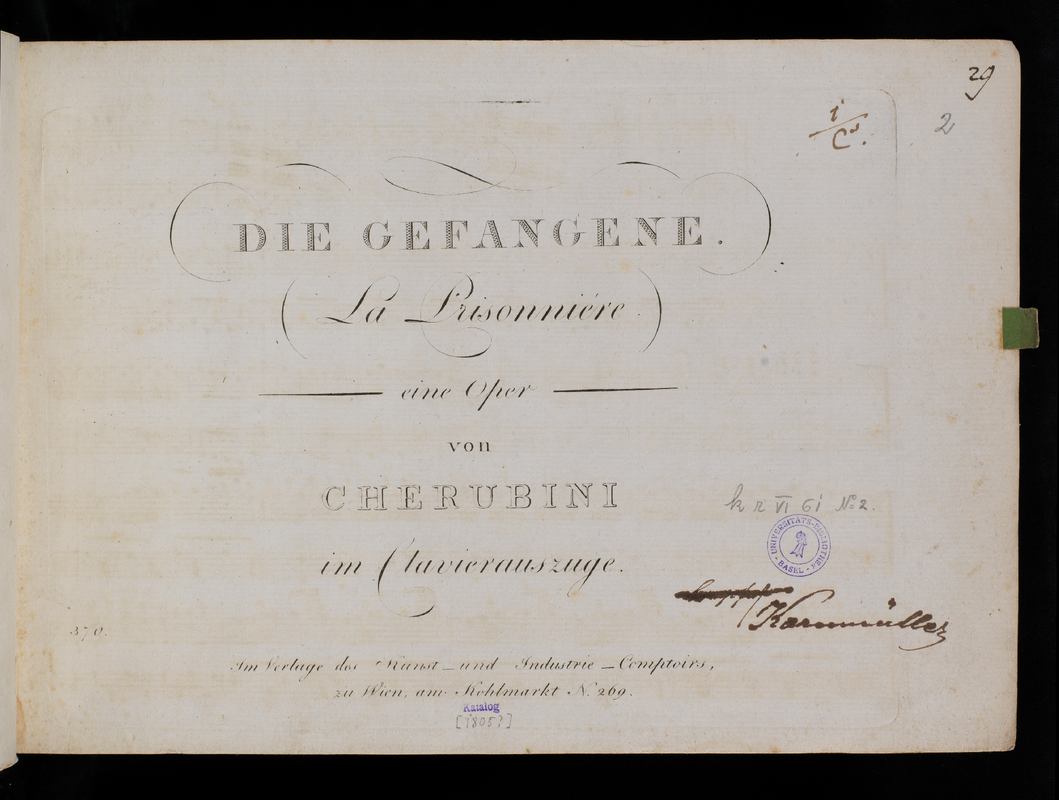 29
2
DIE GEFANGENE.
(La Prisonniére)
eine Oper
von
CHERUBINI
k r VI 61 No 2.
UNIVERSITÄTS-BIBLIOTHEK
BASEL
im Clavierauszuge.
Kornmüller
370.
Im Verlage des Kunst-und Industrie-Comptoirs,
zu Wien, am Kohlmarkt N. 269.
Katalog
[1805?]